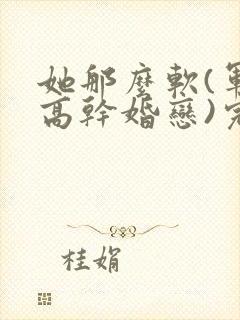 她那麼軟(軍
高幹婚戀)完
桂娟